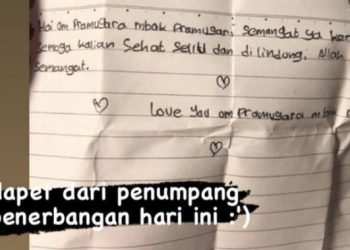 Hai om Pramugara mbak Pramugari, Semangat ya
Semoga kalian Sehat Selalu dan di lindungi Allah
Semangat.
Love you om Pramugara
dapet dari penumpang
penerbangan hari ini :')